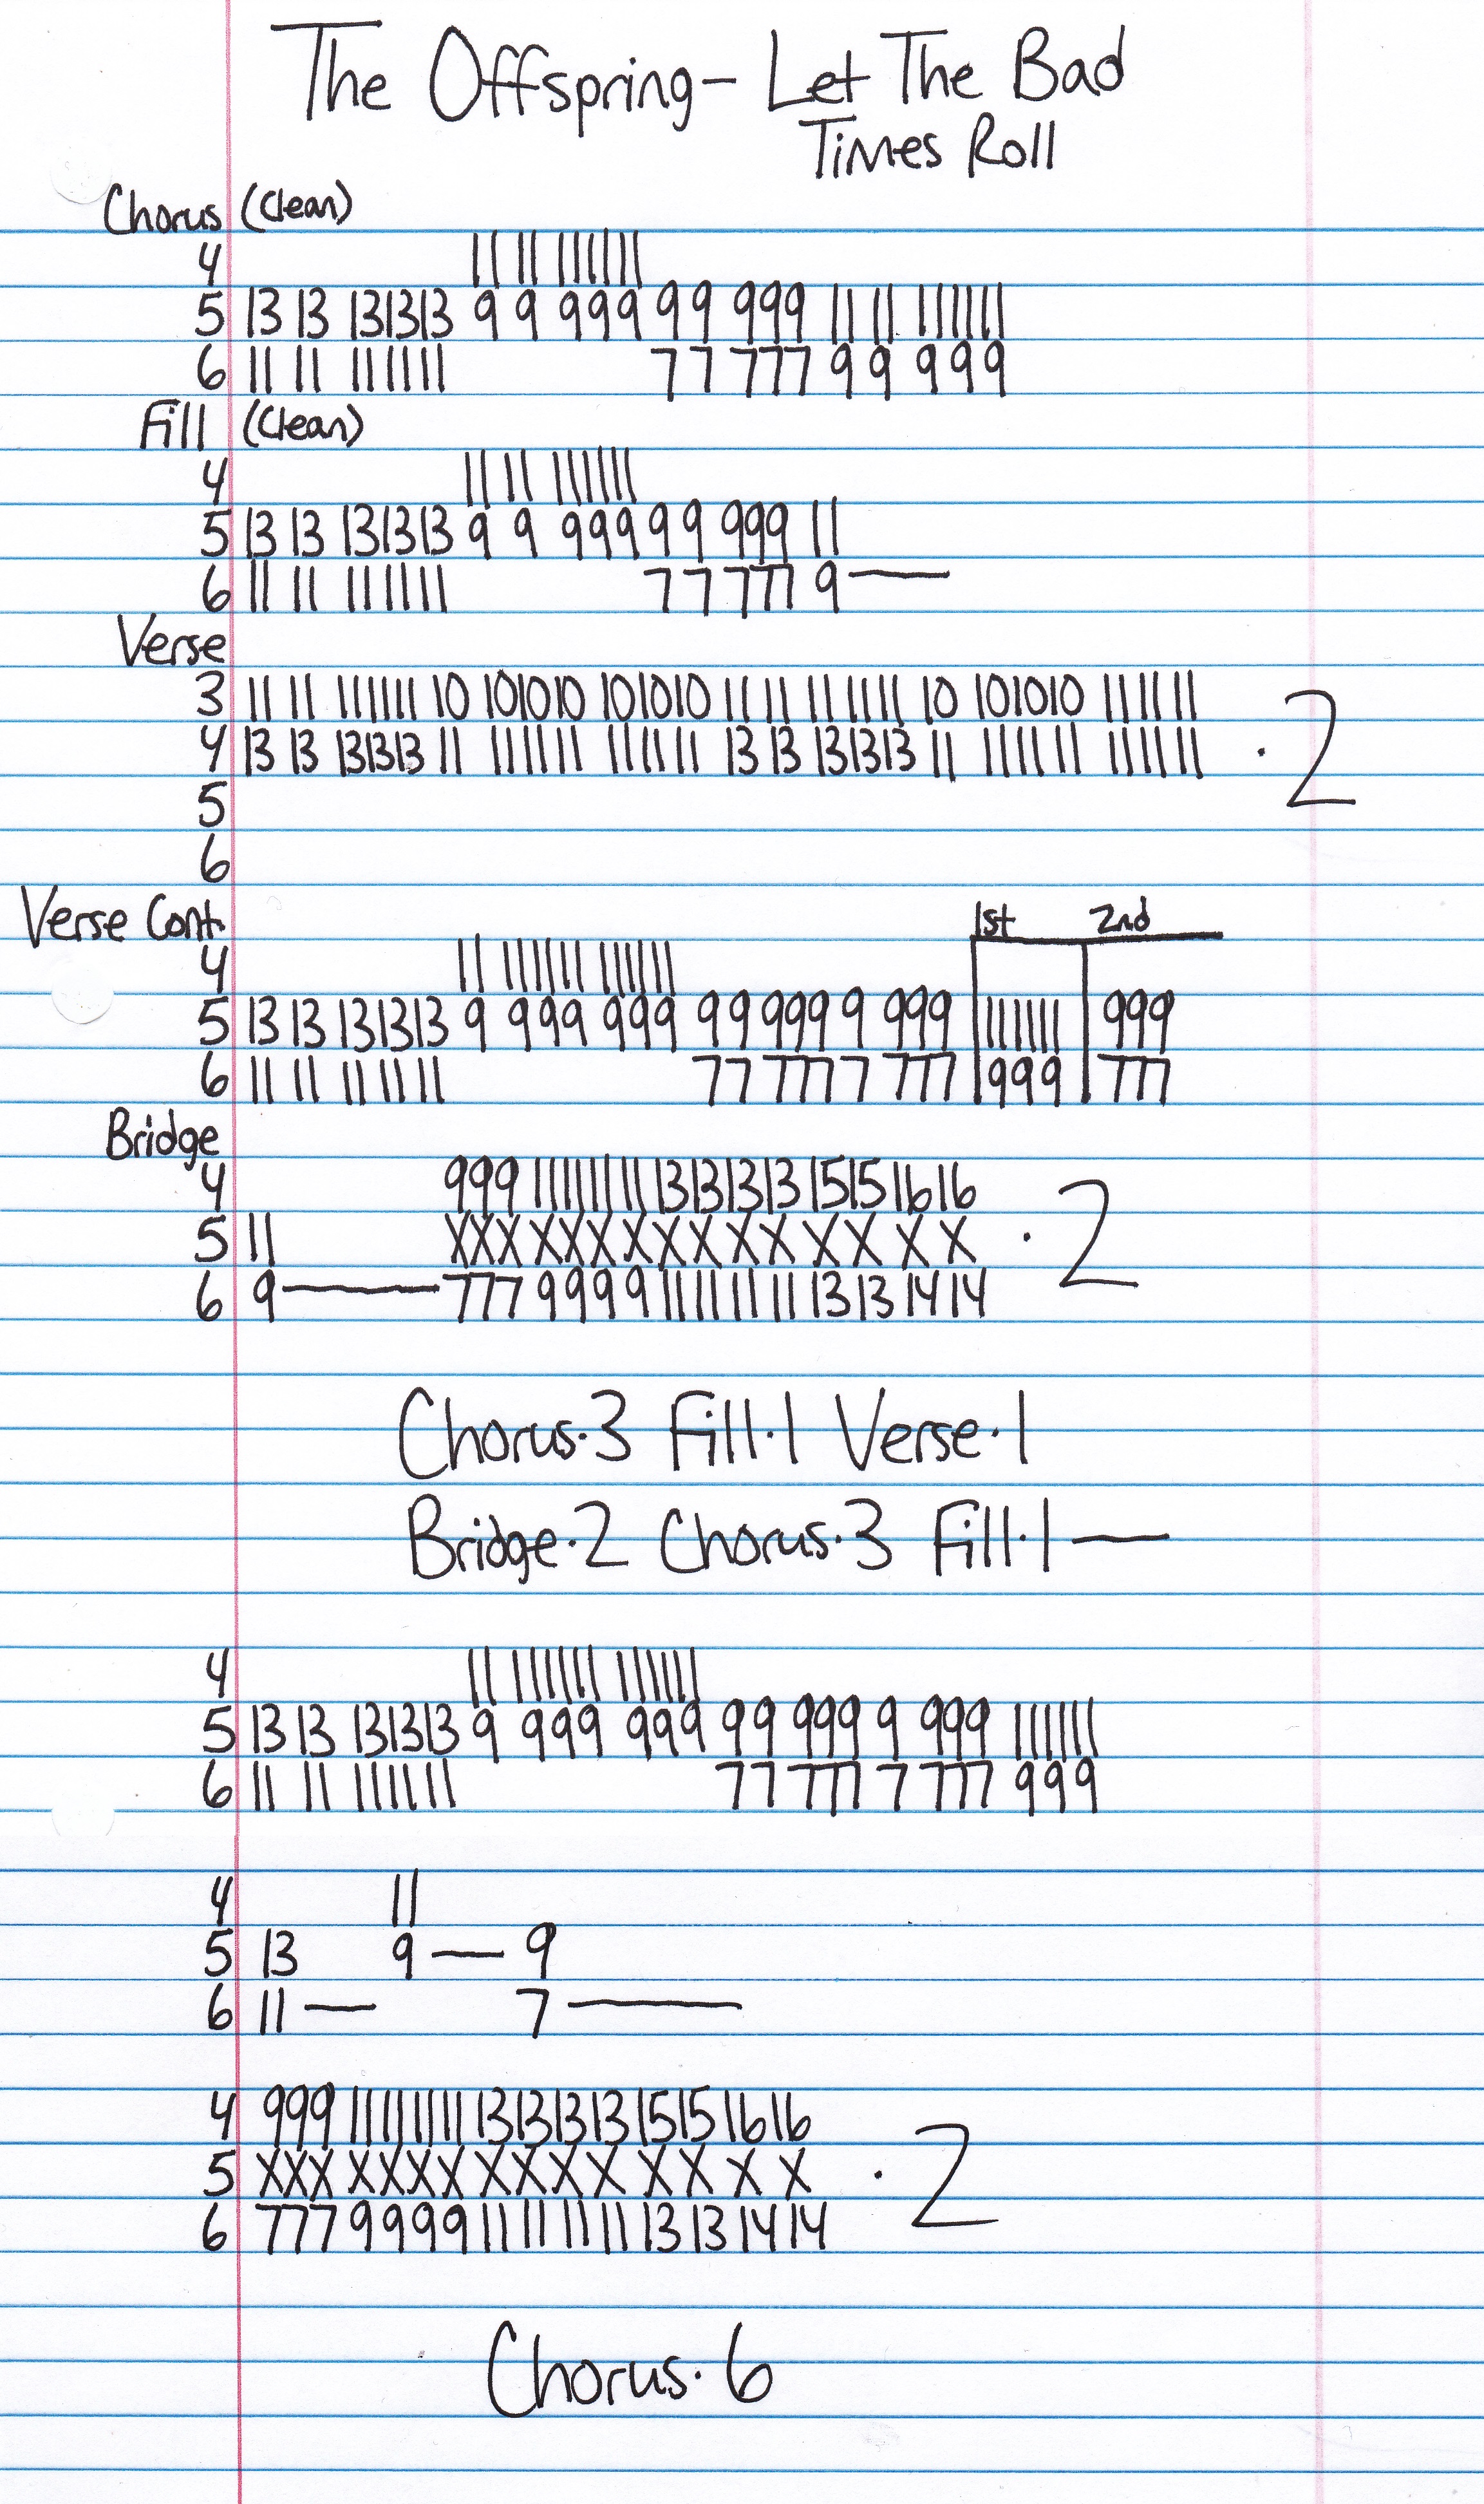 The Offspring - Let The Bad
Times Roll
Chorus (Clean)
4 11 11 111111
5 13 13 131313 9 9 999 99 999 11 11 111111
6 11 11 111111 77 777 99 999
Fill (Clean)
4 11 11 111111
5 13 13 131313 9 9 999 99 999 11
6 11 11 111111 77 777 9—
Verse
3 11 11 111111 10 101010 101010 11 11 111111 10 101010 111111
4 13 13 131313 11 111111 111111 13 13 131313 11 111111 111111 · 2
5
6
Verse Cont. 1st 2nd
4 11 111111 111111
5 13 13 131313 9 999 999 99 999 9 999 111111 999
6 11 11 111111 77 777 7 777 999 777
Bridge
4 999 11111111 13131313 1515 1616
5 11 XXX XXXX XXXX XX XX · 2
6 9— 777 9999 11111111 1313 1414
Chorus·3 Fill·1 Verse·1
Bridge·2 Chorus·3 Fill·1—
4 11 111111 111111
5 13 13 131313 9 999 999 99 999 9 999 111111
6 11 11 111111 77 777 7 777 999
4 11
5 13 9— 9
6 11— 7—
4 999 11111111 13131313 1515 1616
5 XXX XXXX XXXX XX XX · 2
6 777 9999 11111111 1313 1414
Chorus·6